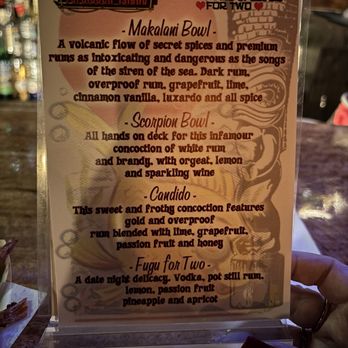 FOR TWO
- Makalani Bowl -
A volcanic flow of secret spices and premium
rums as intoxicating and dangerous as the songs
of the siren of the sea. Dark rum,
overproof rum, grapefruit, lime,
cinnamon vanilla, luxardo and all spice
- Scorpion Bowl -
All hands on deck for this infamour
concoction of white rum
and brandy, with orgeat, lemon
and sparkling wine
- Candido -
This sweet and frothy concoction features
gold and overproof
rum blended with lime, grapefruit,
passion fruit and honey
- Fugu for Two -
A date night delicacy. Vodka, pot still rum,
lemon, passion fruit
pineapple and apricot